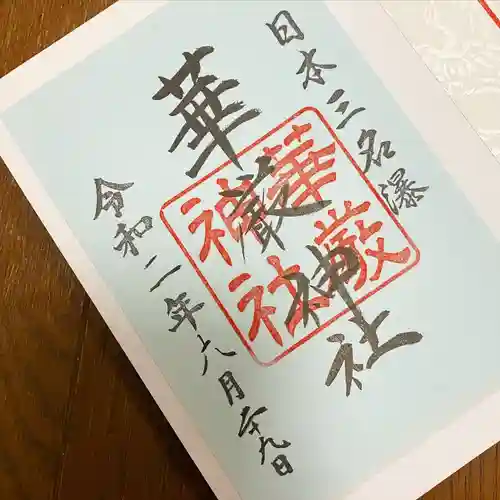 日本三名瀑
華厳神社
華厳神社
令和二年六月廿九日